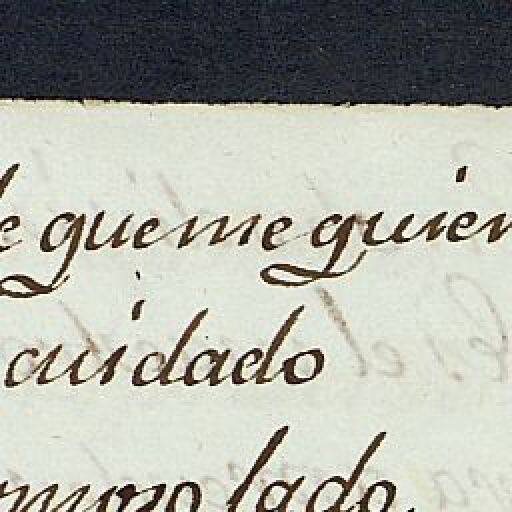 de que me quier
cuidado
moso lado.